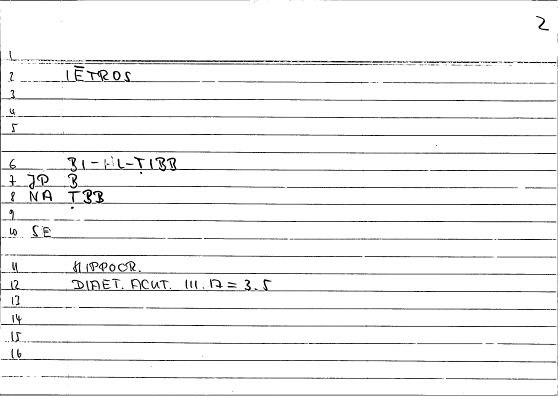 2
1
2 IĒTROS
3
4
5
6 BI-HL-ṬIBB
7 JD B
8 NA ṬBB
9
10 SE
11 HIPPOCR.
12 DIAET. ACUT. III.17 = 3.5
13
14
15
16